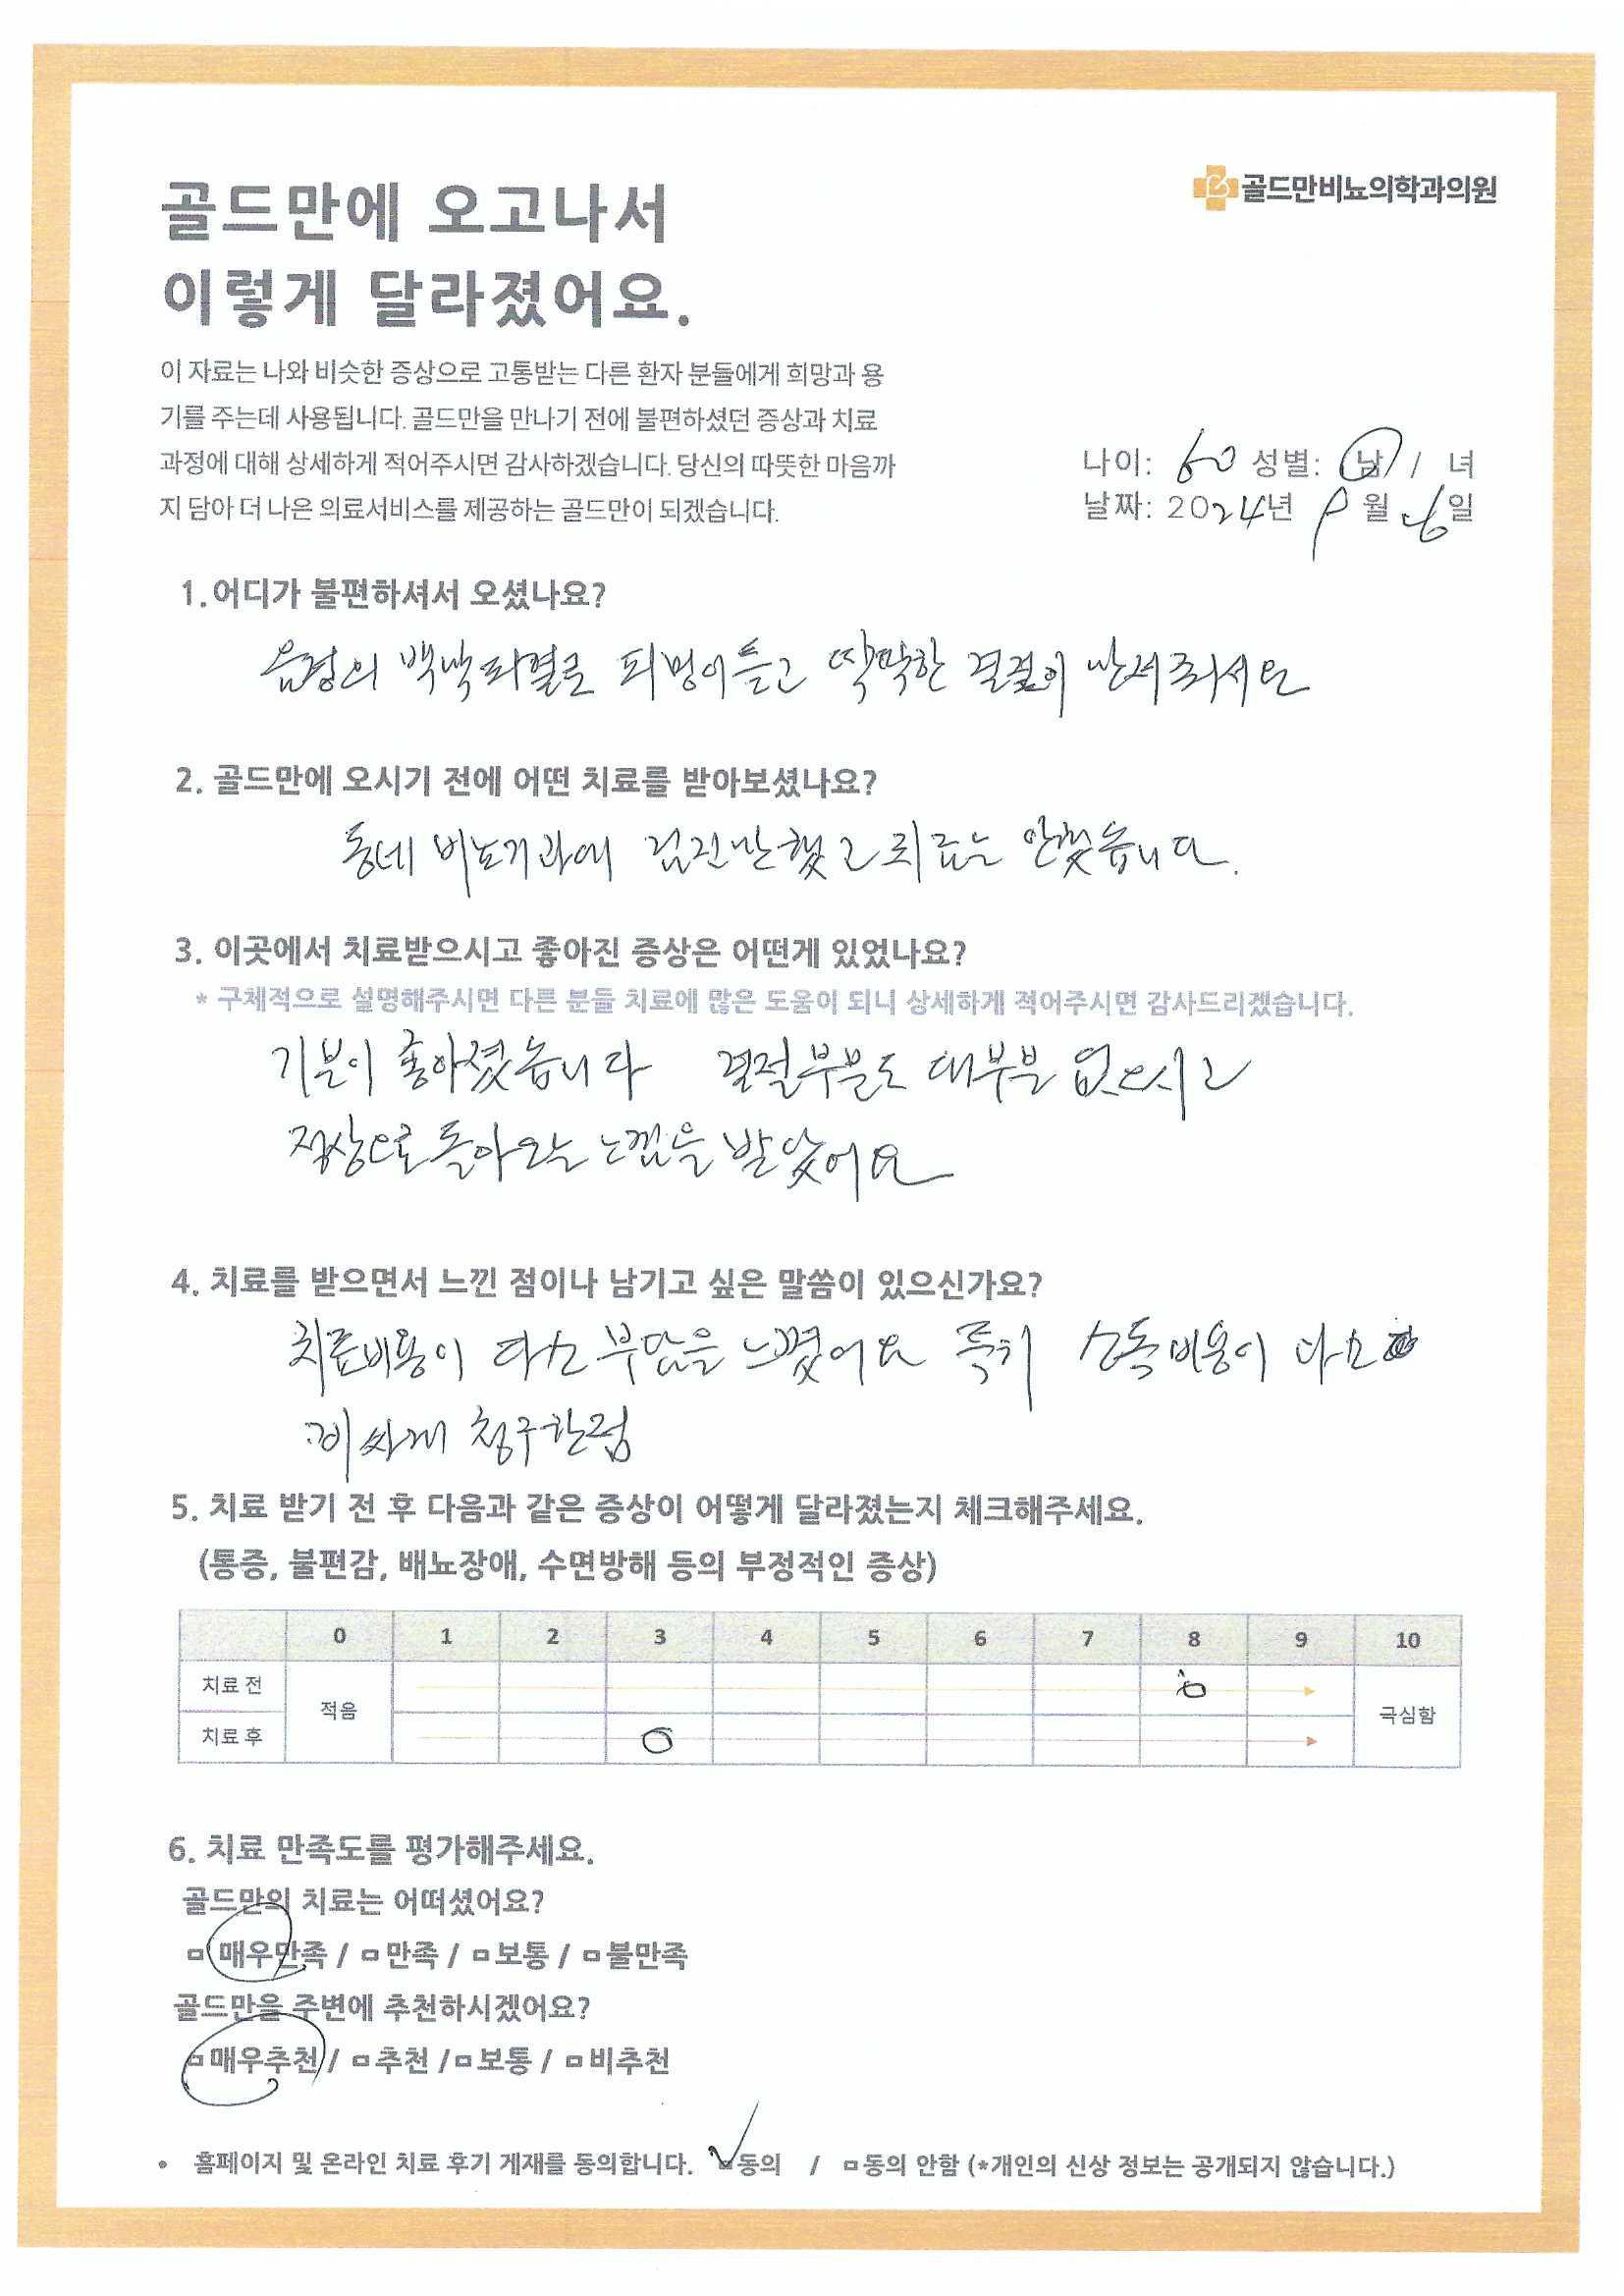 골드만비뇨의학과의원
골드만에 오고나서
이렇게 달라졌어요.
이 자료는 나와 비슷한 증상으로 고통받는 다른 환자 분들에게 희망과 용
기를 주는데 사용됩니다. 골드만을 만나기 전에 불편하셨던 증상과 치료
과정에 대해 상세하게 적어주시면 감사하겠습니다. 당신의 따뜻한 마음까
지 담아 더 나은 의료서비스를 제공하는 골드만이 되겠습니다.
나이: 60 성별: 남 / 녀
날짜: 2024년 9월 26일
1. 어디가 불편하셔서 오셨나요?
음경의 백막파열로 피멍이들고 딱딱한 결절이
2. 골드만에 오시기 전에 어떤 치료를 받아보셨나요?
동네 비뇨기과에 검진만 했고 치료는 안했습니다.
3. 이곳에서 치료받으시고 좋아진 증상은 어떤게 있었나요?
* 구체적으로 설명해주시면 다른 분들 치료에 많은 도움이 되니 상세하게 적어주시면 감사드리겠습니다.
기분이 좋아졌습니다 결절부분도 대부분
정상으로 돌아오는 느낌을 받았어요
4. 치료를 받으면서 느낀 점이나 남기고 싶은 말씀이 있으신가요?
치료비용이 다소 부담을 느꼈어요 특히 소독비용이 다소
비싸게 청구한점
5. 치료 받기 전 후 다음과 같은 증상이 어떻게 달라졌는지 체크해주세요.
(통증, 불편감, 배뇨장애, 수면방해 등의 부정적인 증상)
0 1 2 3 4 5 6 7 8 9 10
치료 전
적음
극심함
치료 후
6. 치료 만족도를 평가해주세요.
골드만의 치료는 어떠셨어요?
매우만족 / 만족 / 보통 / 불만족
골드만을 주변에 추천하시겠어요?
매우추천 / 추천 / 보통 / 비추천
• 홈페이지 및 온라인 치료 후기 게재를 동의합니다. 동의 / 동의 안함 (*개인의 신상 정보는 공개되지 않습니다.)